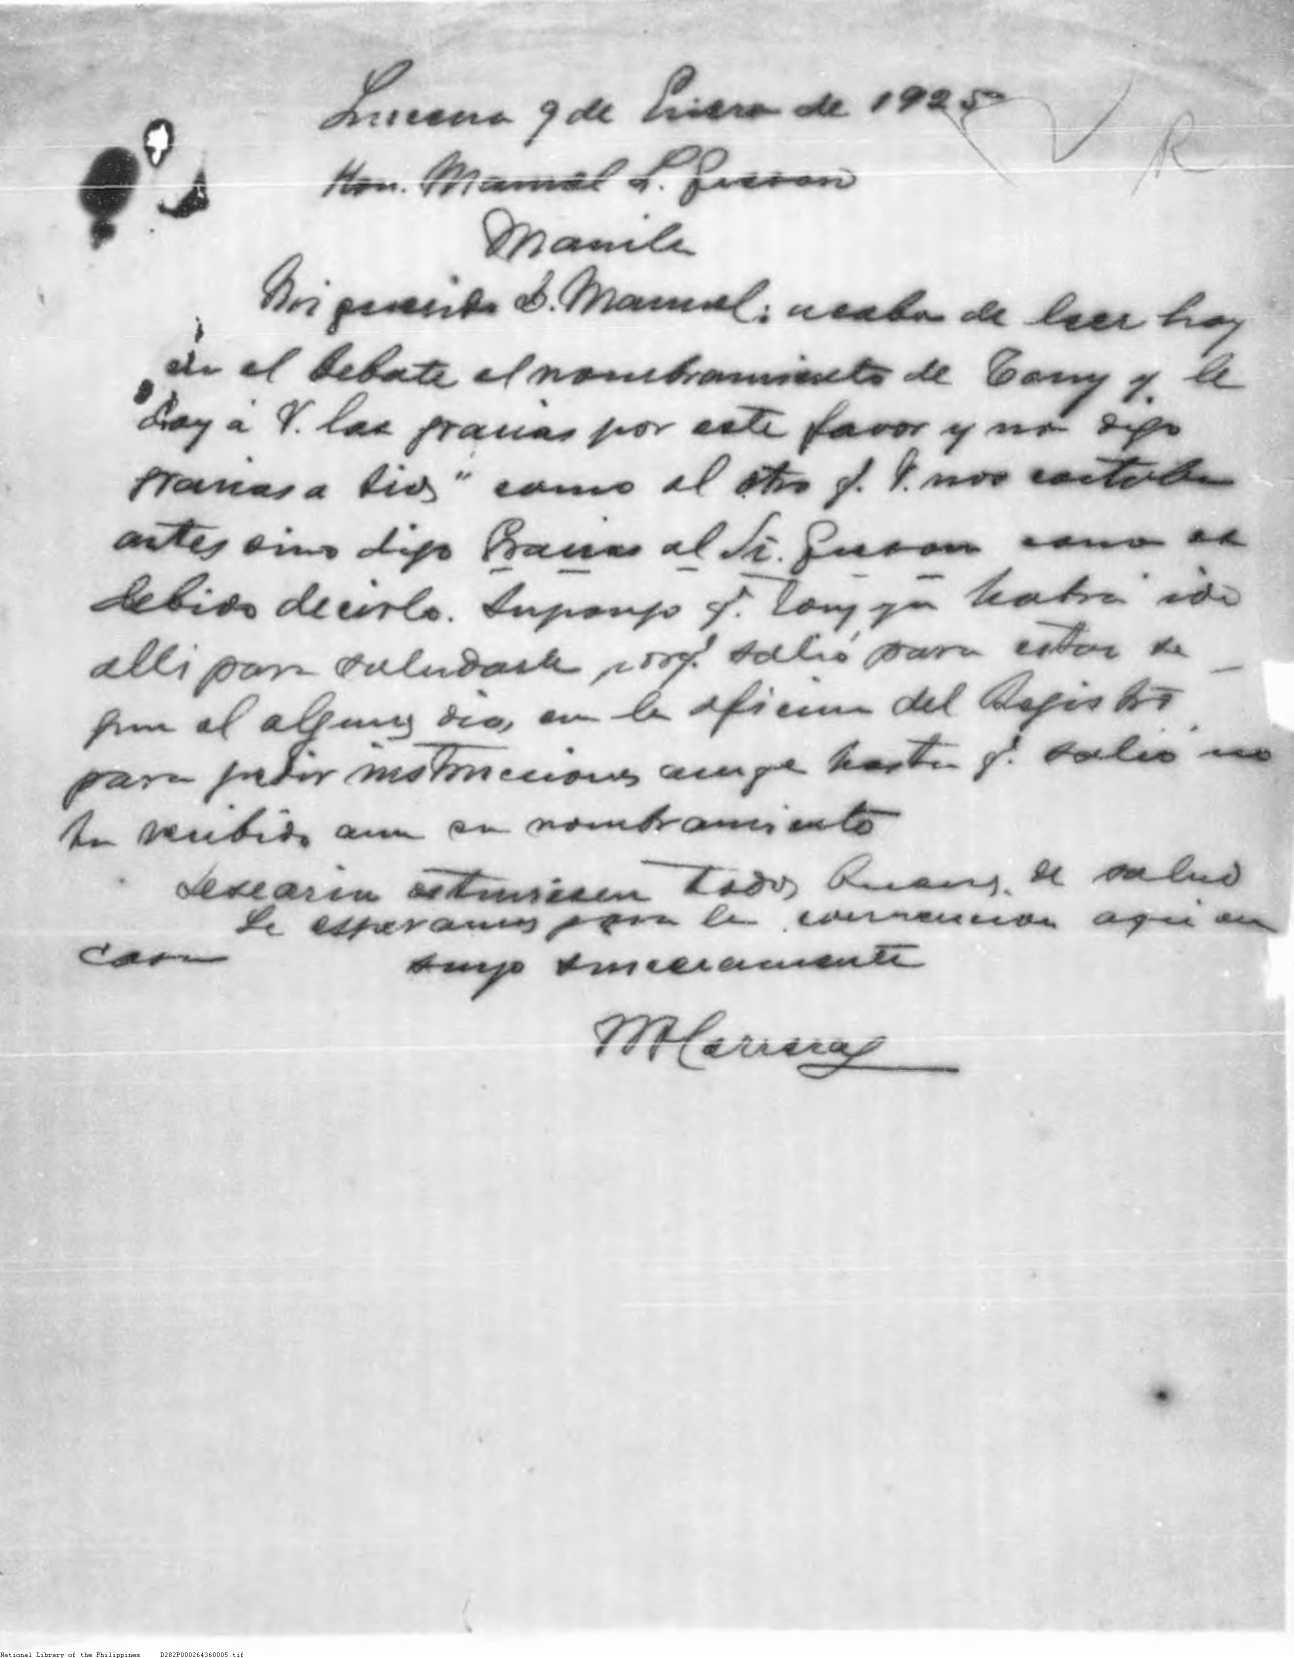 Lucena 9 de Enero de 1925
R
Hon. Manuel L. Quezon
Manila
Mi querido D. Manuel: acabo de leer hoy
en el Debate el nombramiento de Tony y le
doy á V. las gracias por este favor y no digo
gracias a Dios" como el otro q. V. nos contaba
antes sino digo Gracias al Sr. Quezon como es
debido decirlo. Supongo q. Tony ya habrá ido
alli para saludarle porq. salió para estar se
gun el algunos dias en la oficina del Registro
para pedir instrucciones aunqe hasta q. salió no
ha recibido aun su nombramiento
Desearia estuviesen todos Buenos de salud
Le esperamos para la convencion aqui en
casa suyo sinceramente
National Library of the Philippines D282P000264360005.tif